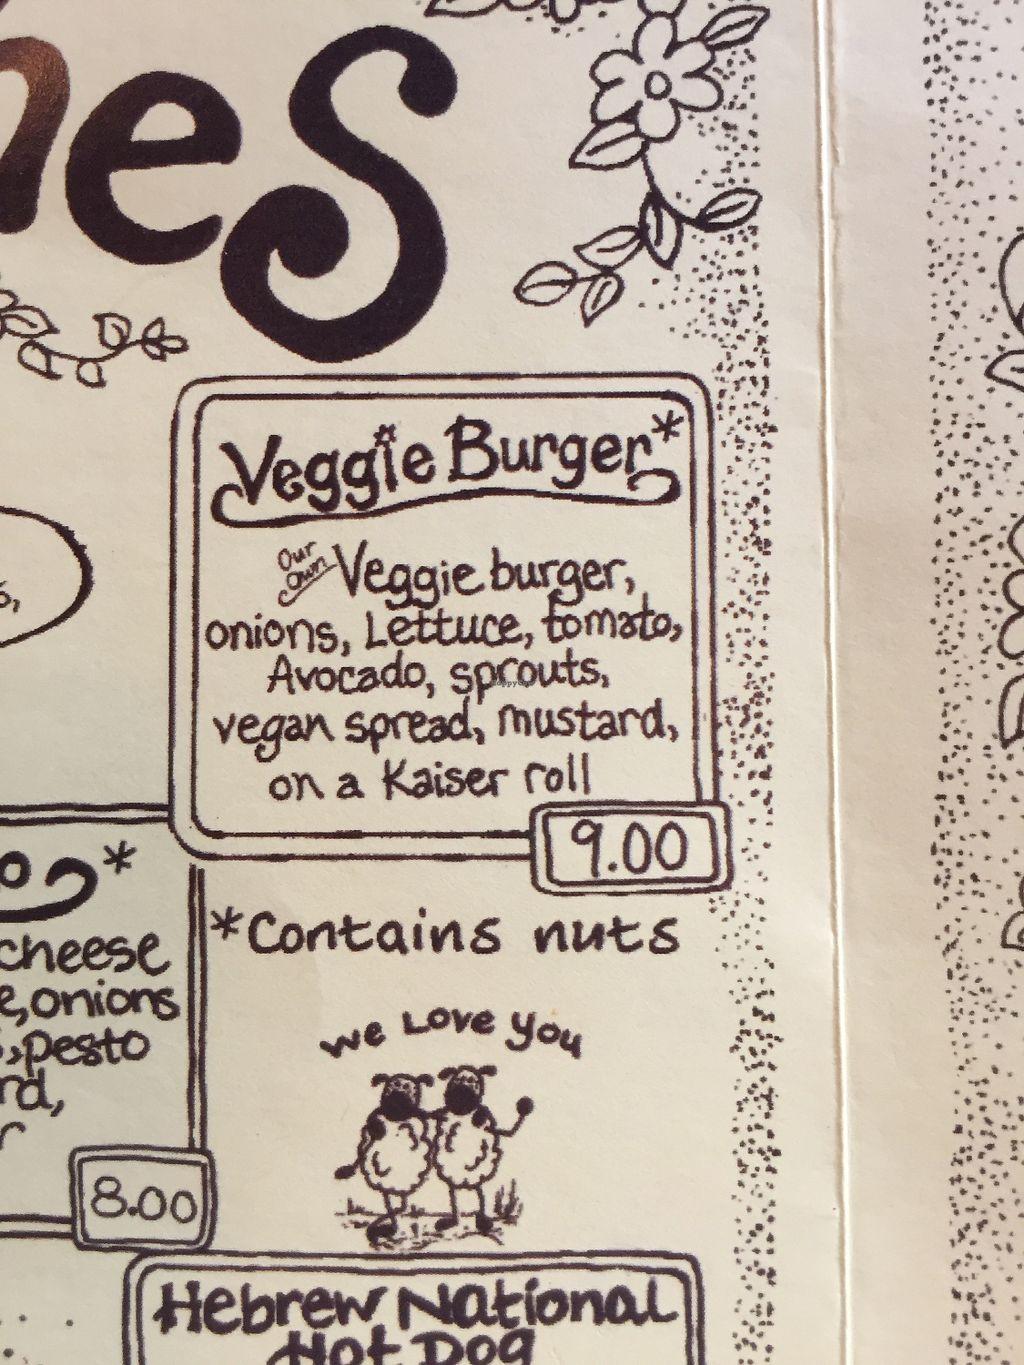 Veggie Burger*
Our
own Veggie burger,
onions, Lettuce, tomato,
Avocado, sprouts,
vegan spread, mustard,
on a Kaiser roll
9.00
*Contains nuts
We Love You
*
cheese
onions
pesto
8.00
Hebrew National
Hot Dog